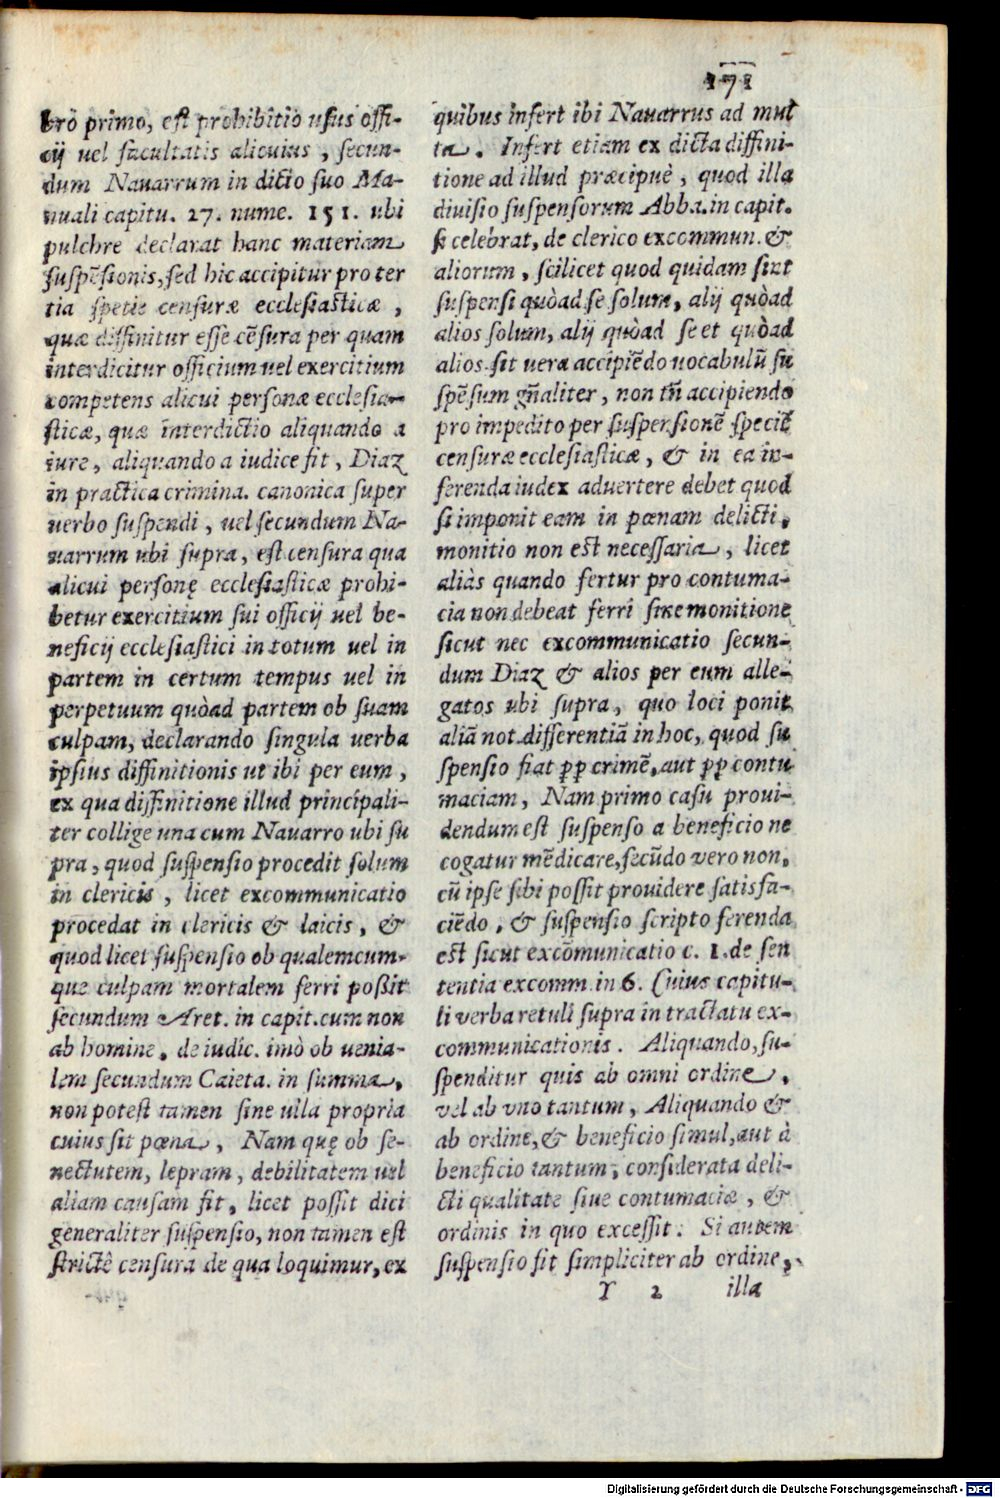 171
bro primo, est prohibitio usus offi-
cij uel facultatis alicuius, secun-
dum Nauarrum in dicto suo Ma-
nuali capitu. 27. nume. 151. ubi
pulchre declarat hanc materiam
suspẽsionis, sed hic accipitur pro ter
tia spetie censuræ ecclesiasticæ,
quæ diffinitur esse cẽsura per quam
interdicitur officium uel exercitium
competens alicui personæ ecclesia-
sticæ, quæ interdictio aliquando a
iure, aliquando a iudice fit, Diaz
in practica crimina. canonica super
uerbo suspendi, uel secundum Na-
uarrum ubi supra, est censura qua
alicui personę ecclesiasticæ prohi-
betur exercitium sui officij uel be-
neficij ecclesiastici in totum uel in
partem in certum tempus uel in
perpetuum quòad partem ob suam
culpam, declarando singula uerba
ipsius diffinitionis ut ibi per eum,
ex qua diffinitione illud principali-
ter collige una cum Nauarro ubi su
pra, quod suspensio procedit solum
in clericis, licet excommunicatio
procedat in clericis & laicis, &
quod licet suspensio ob qualemcum-
que culpam mortalem ferri poßit
secundum Aret. in capit. cum non
ab homine, de iudic. imò ob uenia-
lem secundum Caieta. in summa,
non potest tamen sine ulla propria
cuius sit pœna, Nam quę ob se-
nectutem, lepram, debilitatem uel
aliam causam fit, licet possit dici
generaliter suspensio, non tamen est
strictè censura de qua loquimur, ex
quibus infert ibi Nauarrus ad mul
ta. Infert etiam ex dicta diffini-
tione ad illud præcipuè, quod illa
diuisio suspensorum Abba. in capit.
si celebrat, de clerico excommun. &
aliorum, scilicet quod quidam sint
suspensi quòad se solum, alij quòad
alios solum, alij quòad se et quòad
alios sit uera accipiẽdo uocabulũ su
spẽsum gñaliter, non tñ accipiendo
pro impedito per suspensionẽ speciẽ
censuræ ecclesiasticæ, & in ea in-
ferenda iudex aduertere debet quod
si imponit eam in pœnam delicti,
monitio non est necessaria, licet
aliàs quando fertur pro contuma-
cia non debeat ferri sine monitione
sicut nec excommunicatio secun-
dum Diaz & alios per eum alle-
gatos ubi supra, quo loci ponit
aliã not. differentiã in hoc, quod su
spensio fiat ꝓp crimẽ, aut ꝓp contu
maciam, Nam primo casu proui-
dendum est suspenso a beneficio ne
cogatur mẽdicare, secũdo vero non,
cũ ipse sibi possit prouidere satisfa-
ciẽdo, & suspensio scripto ferenda
est sicut excõmunicatio c. 1. de sen
tentia excomm. in 6. Cuius capitu-
li verba retuli supra in tractatu ex-
communicationis. Aliquando, su-
spenditur quis ab omni ordine,
vel ab vno tantum, Aliquando &
ab ordine, & beneficio simul, aut à
beneficio tantum, considerata deli-
cti qualitate siue contumaciæ, &
ordinis in quo excessit. Si autem
suspensio fit simpliciter ab ordine,
Y 2 illa
Digitalisierung gefördert durch die Deutsche Forschungsgemeinschaft - DFG